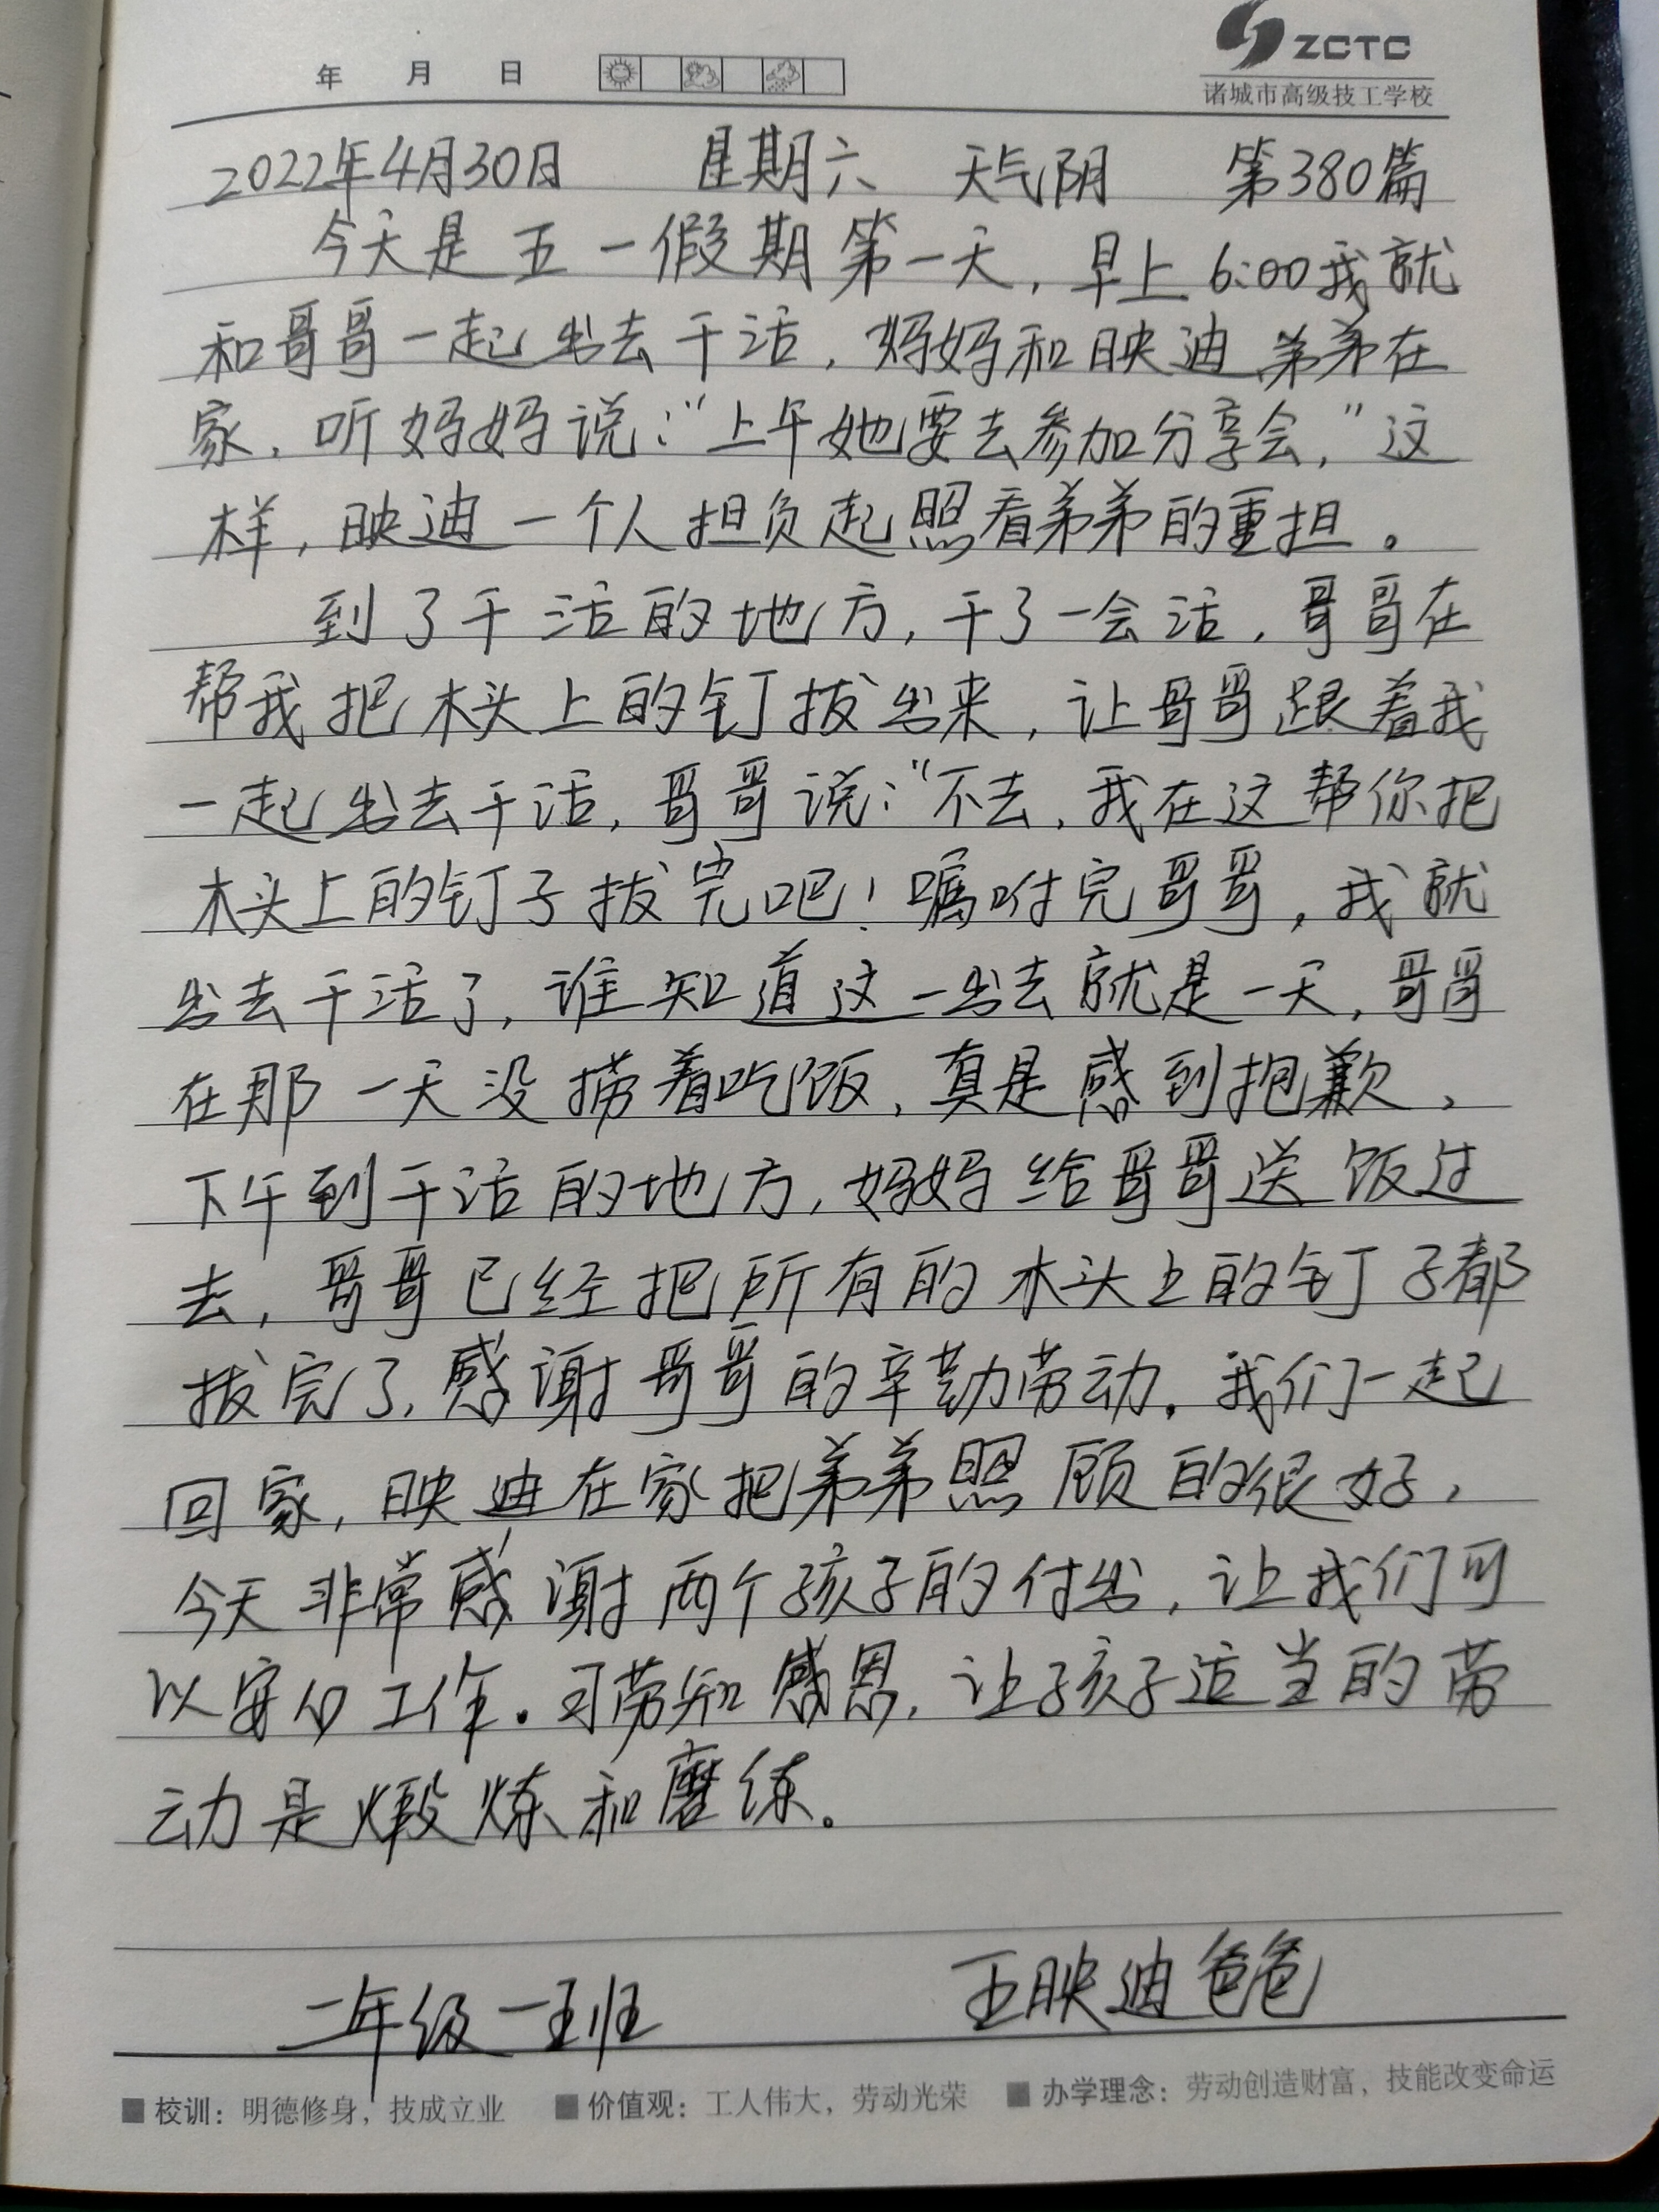 ZCTC
年 月 日
诸城市高级技工学校
2022年4月30日 星期六 天气阴 第380篇
今天是五一假期第一天，早上6:00我就
和哥哥一起出去干活，妈妈和映迪弟弟在
家，听妈妈说：“上午她要去参加分享会，”这
样，映迪一个人担负起照看弟弟的重担。
到了干活的地方，干了一会活，哥哥在
帮我把木头上的钉拔出来，让哥哥跟着我
一起出去干活，哥哥说：“不去，我在这帮你把
木头上的钉子拔完吧！嘱咐完哥哥，我就
出去干活了，谁知道这一出去就是一天，哥哥
在那一天没捞着吃饭，真是感到抱歉，
下午到干活的地方，妈妈给哥哥送饭过
去，哥哥已经把所有的木头上的钉子都
拔完了，感谢哥哥的辛勤劳动。我们一起
回家，映迪在家把弟弟照顾的很好，
今天非常感谢两个孩子的付出，让我们可
以安心工作。习劳知感恩，让孩子适当的劳
动是煅炼和磨练。
二年级一班 王映迪爸爸
校训：明德修身，技成立业 价值观：工人伟大，劳动光荣 办学理念：劳动创造财富，技能改变命运